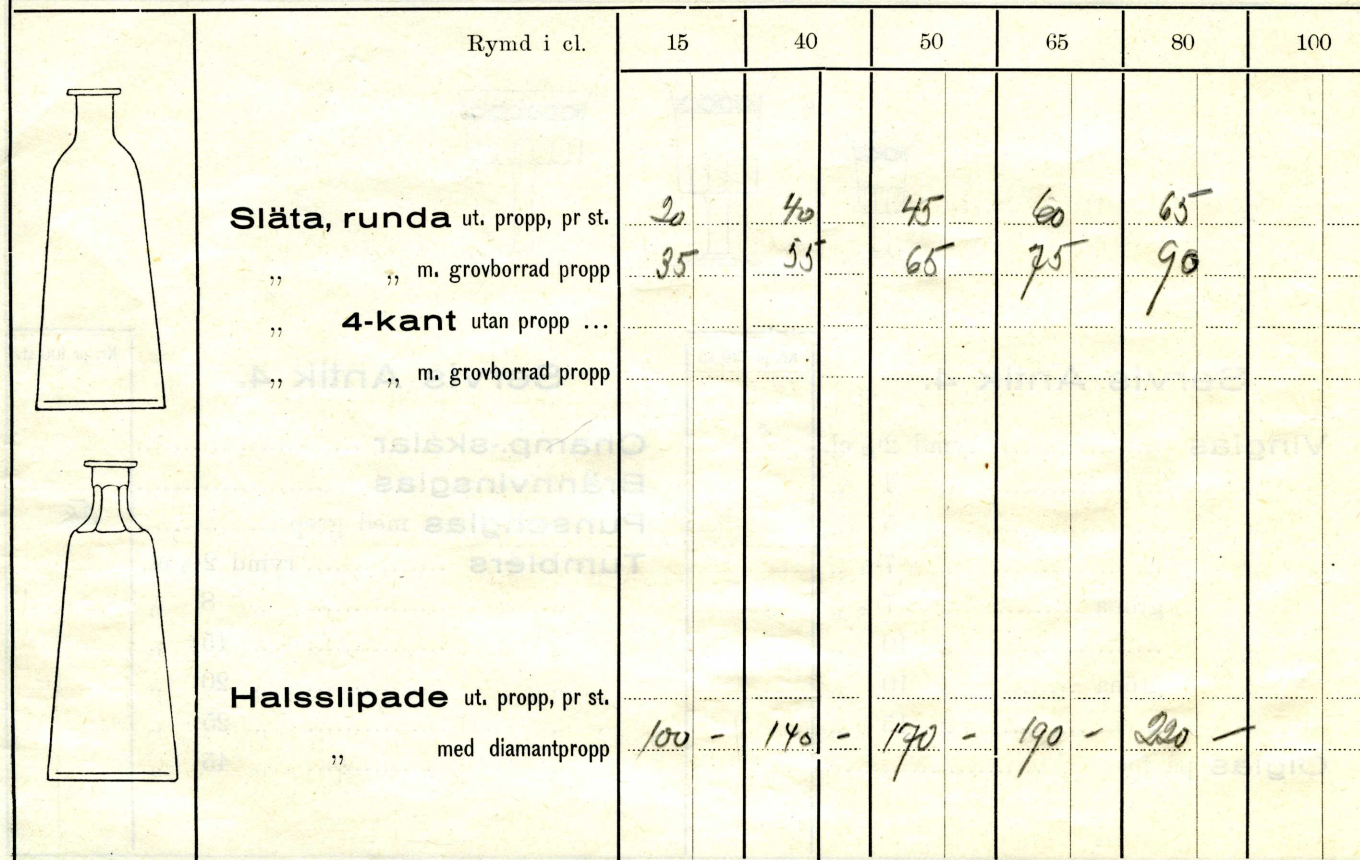 Rymd i cl. 15 40 50 65 80 100
Släta, runda ut. propp, pr st. 20 40 45 60 65
„ „ m. grovborrad propp 35 55 65 75 90
„ 4-kant utan propp ...
„ „ m. grovborrad propp
Halsslipade ut. propp, pr st.
„ med diamantpropp 100 - 140 - 170 - 190 - 220 -